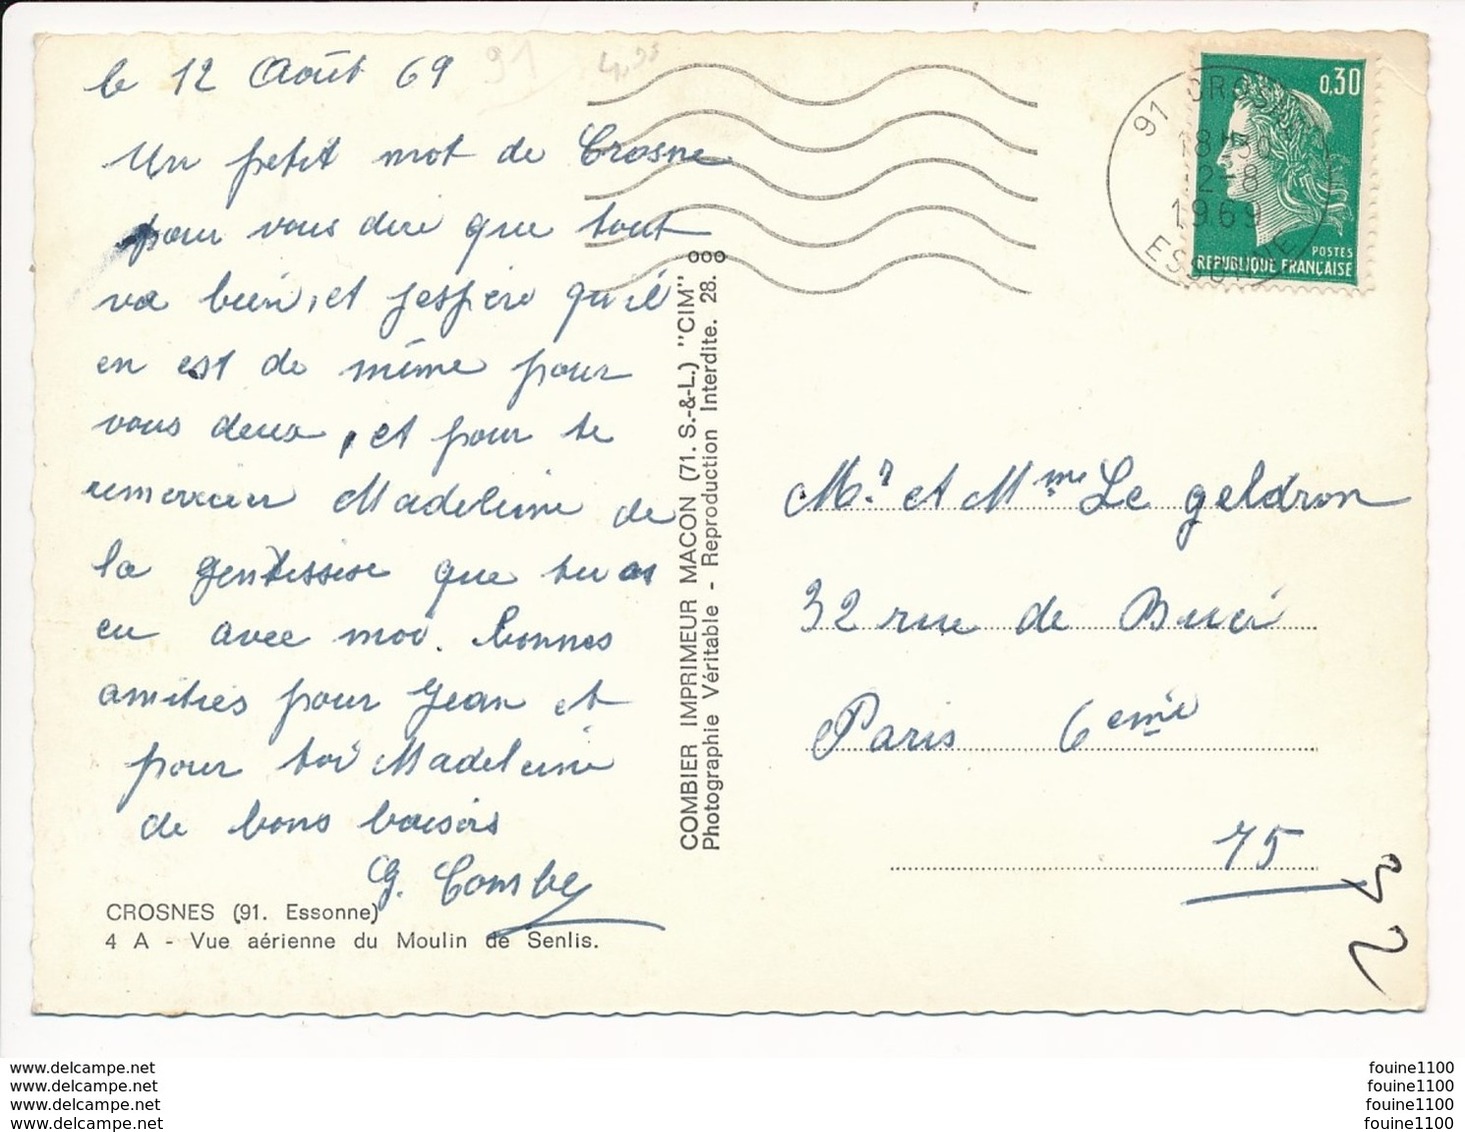 le 12 Août 69
91
Un petit mot de Crosne
pour vous dire que tout
va bien, et j'espère qu'il
en est de même pour
vous deux, et pour te
remercier Madeleine de
la gentillesse que tu as
eu avec moi. bonnes
amitiés pour Jean et
pour toi Madeleine
de bons baisers
G. Combe
CROSNES (91. Essonne)
4 A - Vue aérienne du Moulin de Senlis.
COMBIER IMPRIMEUR MACON (71. S.-&-L.) "CIM"
Photographie Véritable - Reproduction Interdite. 28.
91 CROSNE
18H30
12-8
1969
ESSONNE
0,30
POSTES
REPUBLIQUE FRANÇAISE
Mr et Mme Le geldron
32 rue de Buci
Paris 6eme
75
www.delcampe.net
www.delcampe.net
www.delcampe.net
www.delcampe.net
fouine1100
fouine1100
fouine1100
fouine1100